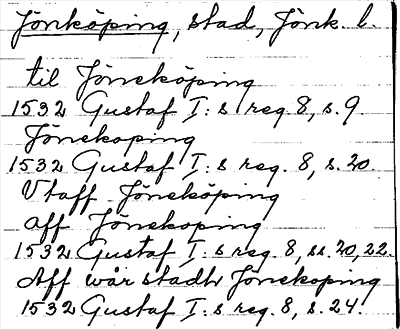 Jönköping, stad, Jönk. l.
til Jöneköping
1532 Gustaf I:s reg. 8, s. 9.
Jönekoping
1532 Gustaf I:s reg. 8, s. 20.
Vtaff Jöneköping
aff Jönekoping
1532 Gustaf I:s reg. 8, ss. 20, 22.
Aff wår stadh Jönekoping
1532 Gustaf I:s reg. 8, s. 24.